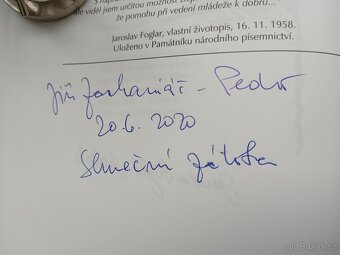 že viděl jsem určitou možnost
že pomohu při vedení mládeže k dobru...
Jaroslav Foglar, vlastní životopis, 16. 11. 1958.
Uloženo v Památníku národního písemnictví.
Jiří Zachariáš - Pedro
20.6. 2020
Sluneční zátoka